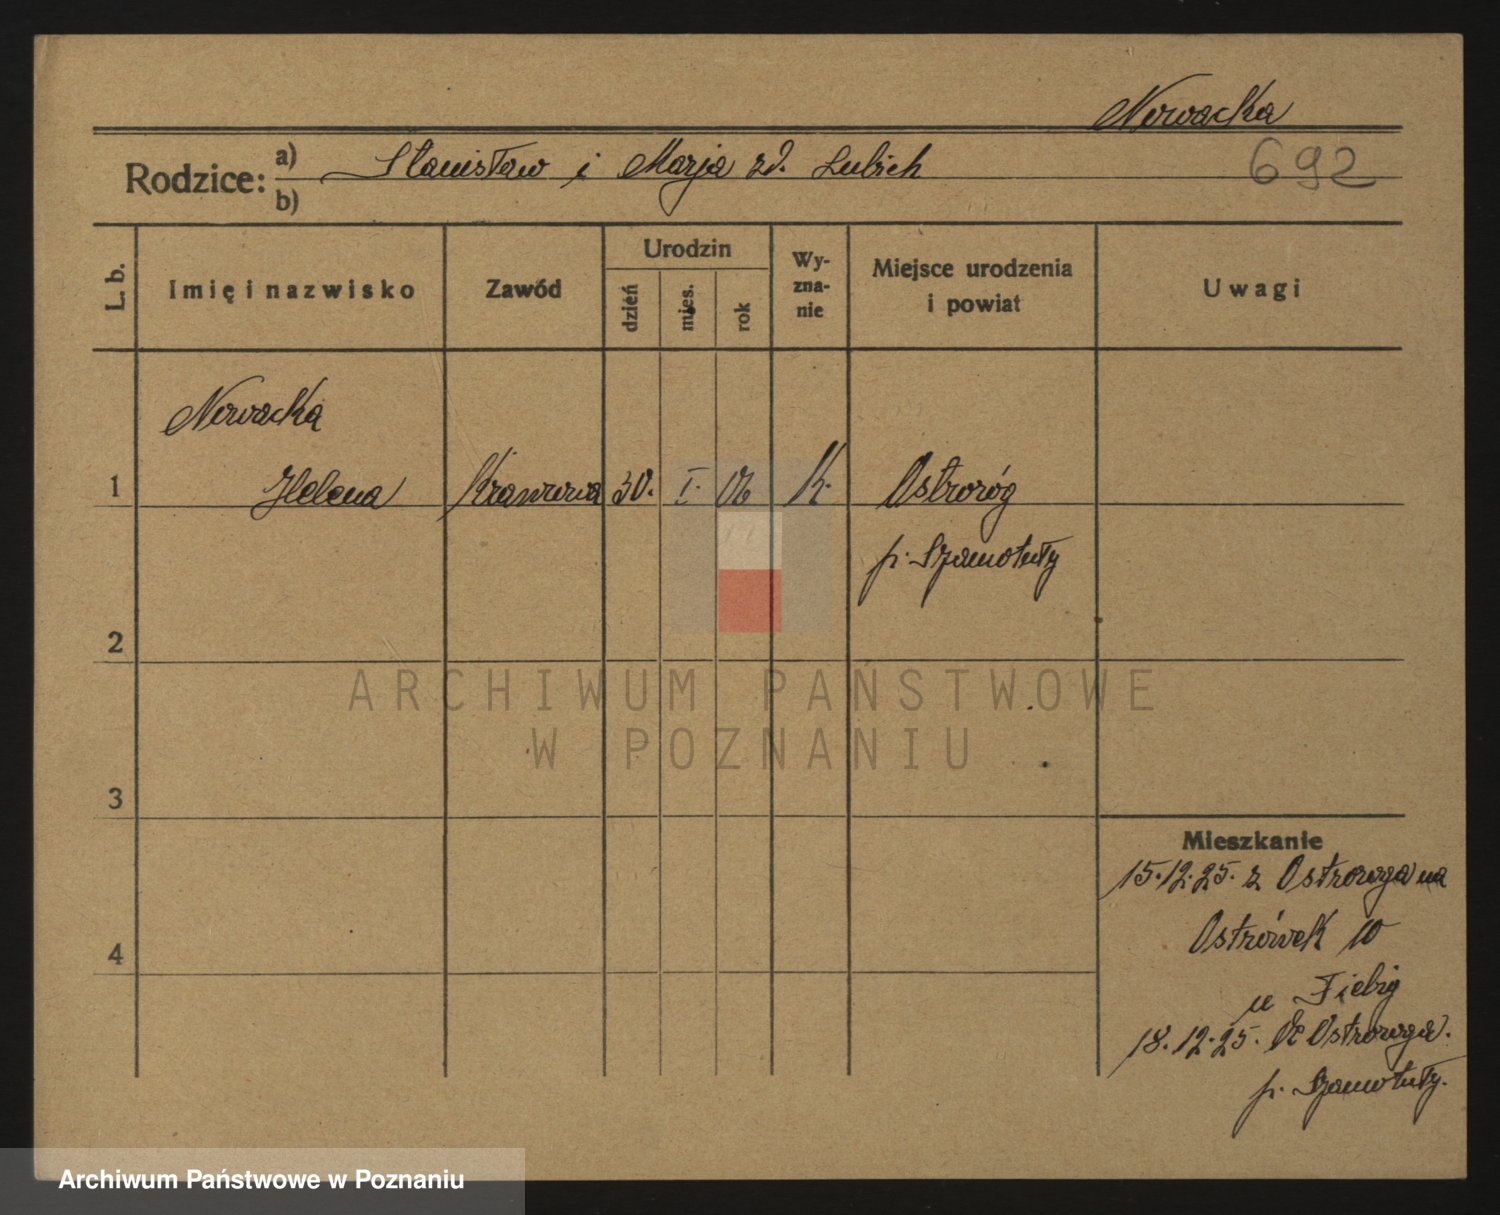 Nowacka
Rodzice: a) Stanisław i Marja zd. Lubich
b)
692
L. b.
Imię i nazwisko
Zawód
Urodzin
dzień
mies.
rok
Wy-
zna-
nie
Miejsce urodzenia
i powiat
Uwagi
Nowacka
1 Helena Krawcowa 30. I. 06 K. Ostroróg
p. Szamotuły
2
ARCHIWUM PAŃSTWOWE
W POZNANIU
3
Mieszkanie
15.12.25. z Ostroroga na
4
Ostrówek 10
u Fiebig
18.12.25. Ostroroga.
p. Szamotuły.
Archiwum Państwowe w Poznaniu